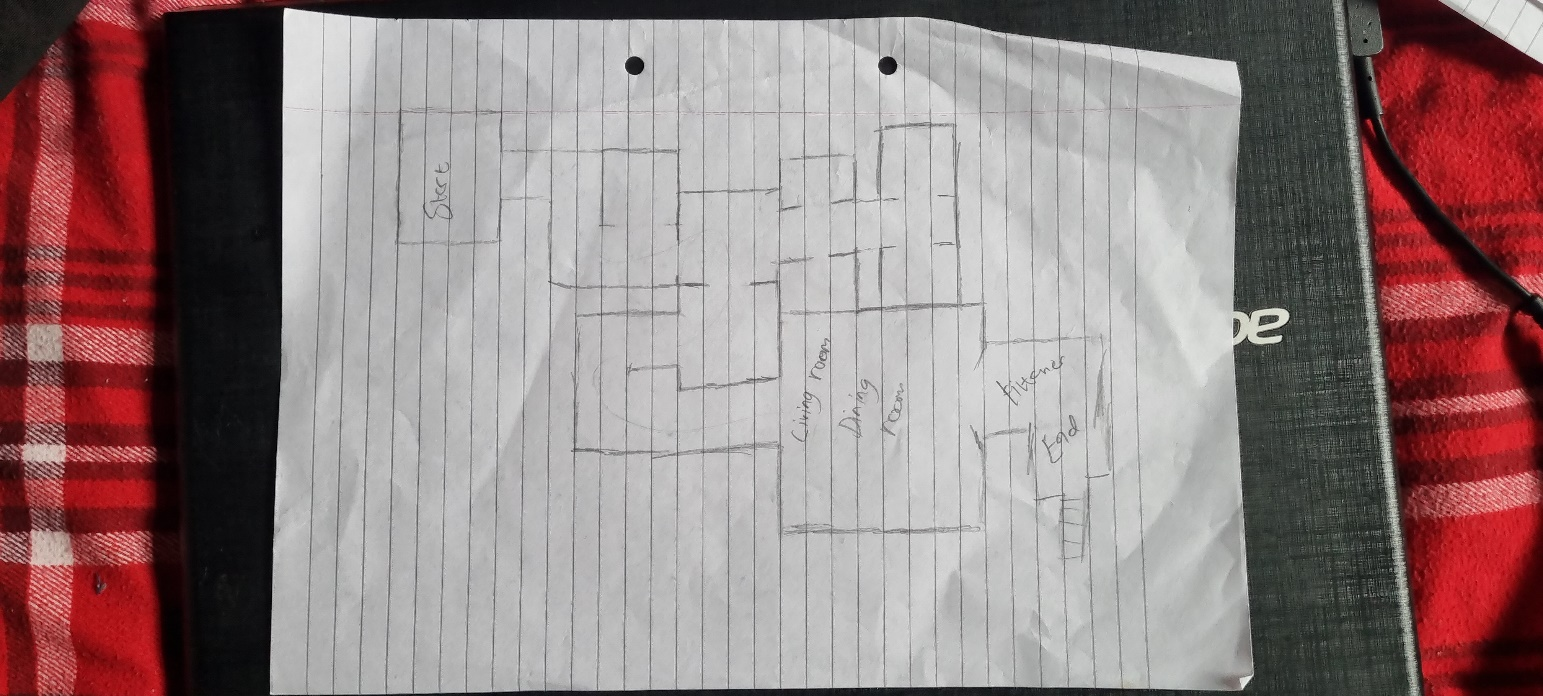 Start
Living room
Dining
room
Kittener
End
ac